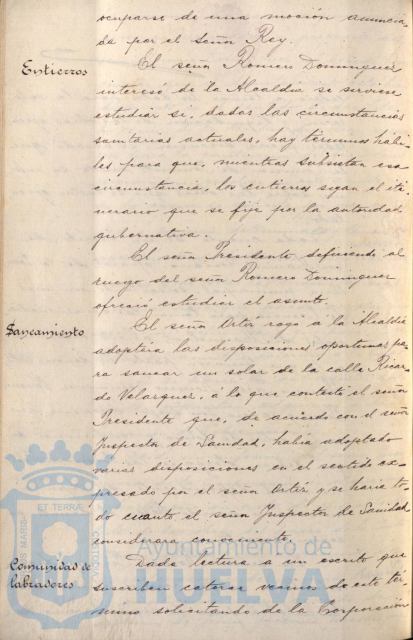 ocuparse de una moción anuncia-
da por el señor Rey.
Entierros
El señor Romero Dominguez
interesó de la Alcaldía se sirviese
estudiar si, dadas las circunstancias
sanitarias actuales, hay términos hábi-
les para que, mientras subsistan esa
circunstancia, los entierros sigan el iti-
nerario que se fije por la autoridad
gubernativa.
El señor Presidente defiriendo al
ruego del señor Romero Dominguez
ofreció estudiar el asunto.
Saneamiento
El señor Ortíz rogó á la Alcaldía
adoptára las disposiciones oportunas pa-
ra sanear un solar de la calle Ricar-
do Velazquez, á lo que contestó el señor
Presidente que, de acuerdo con el señor
Inspector de Sanidad, había adoptado
varias disposiciones en el sentido ex-
presado por el señor Ortíz y se haría to-
do cuanto el señor Inspector de Sanidad
considerara conveniente.
Comunidad de
labradores
Dada lectura a un escrito que
suscriben catorce vecinos de este tér-
mino solicitando de la Corporación
ET TERRÆ
Ayuntamiento de
HUELVA